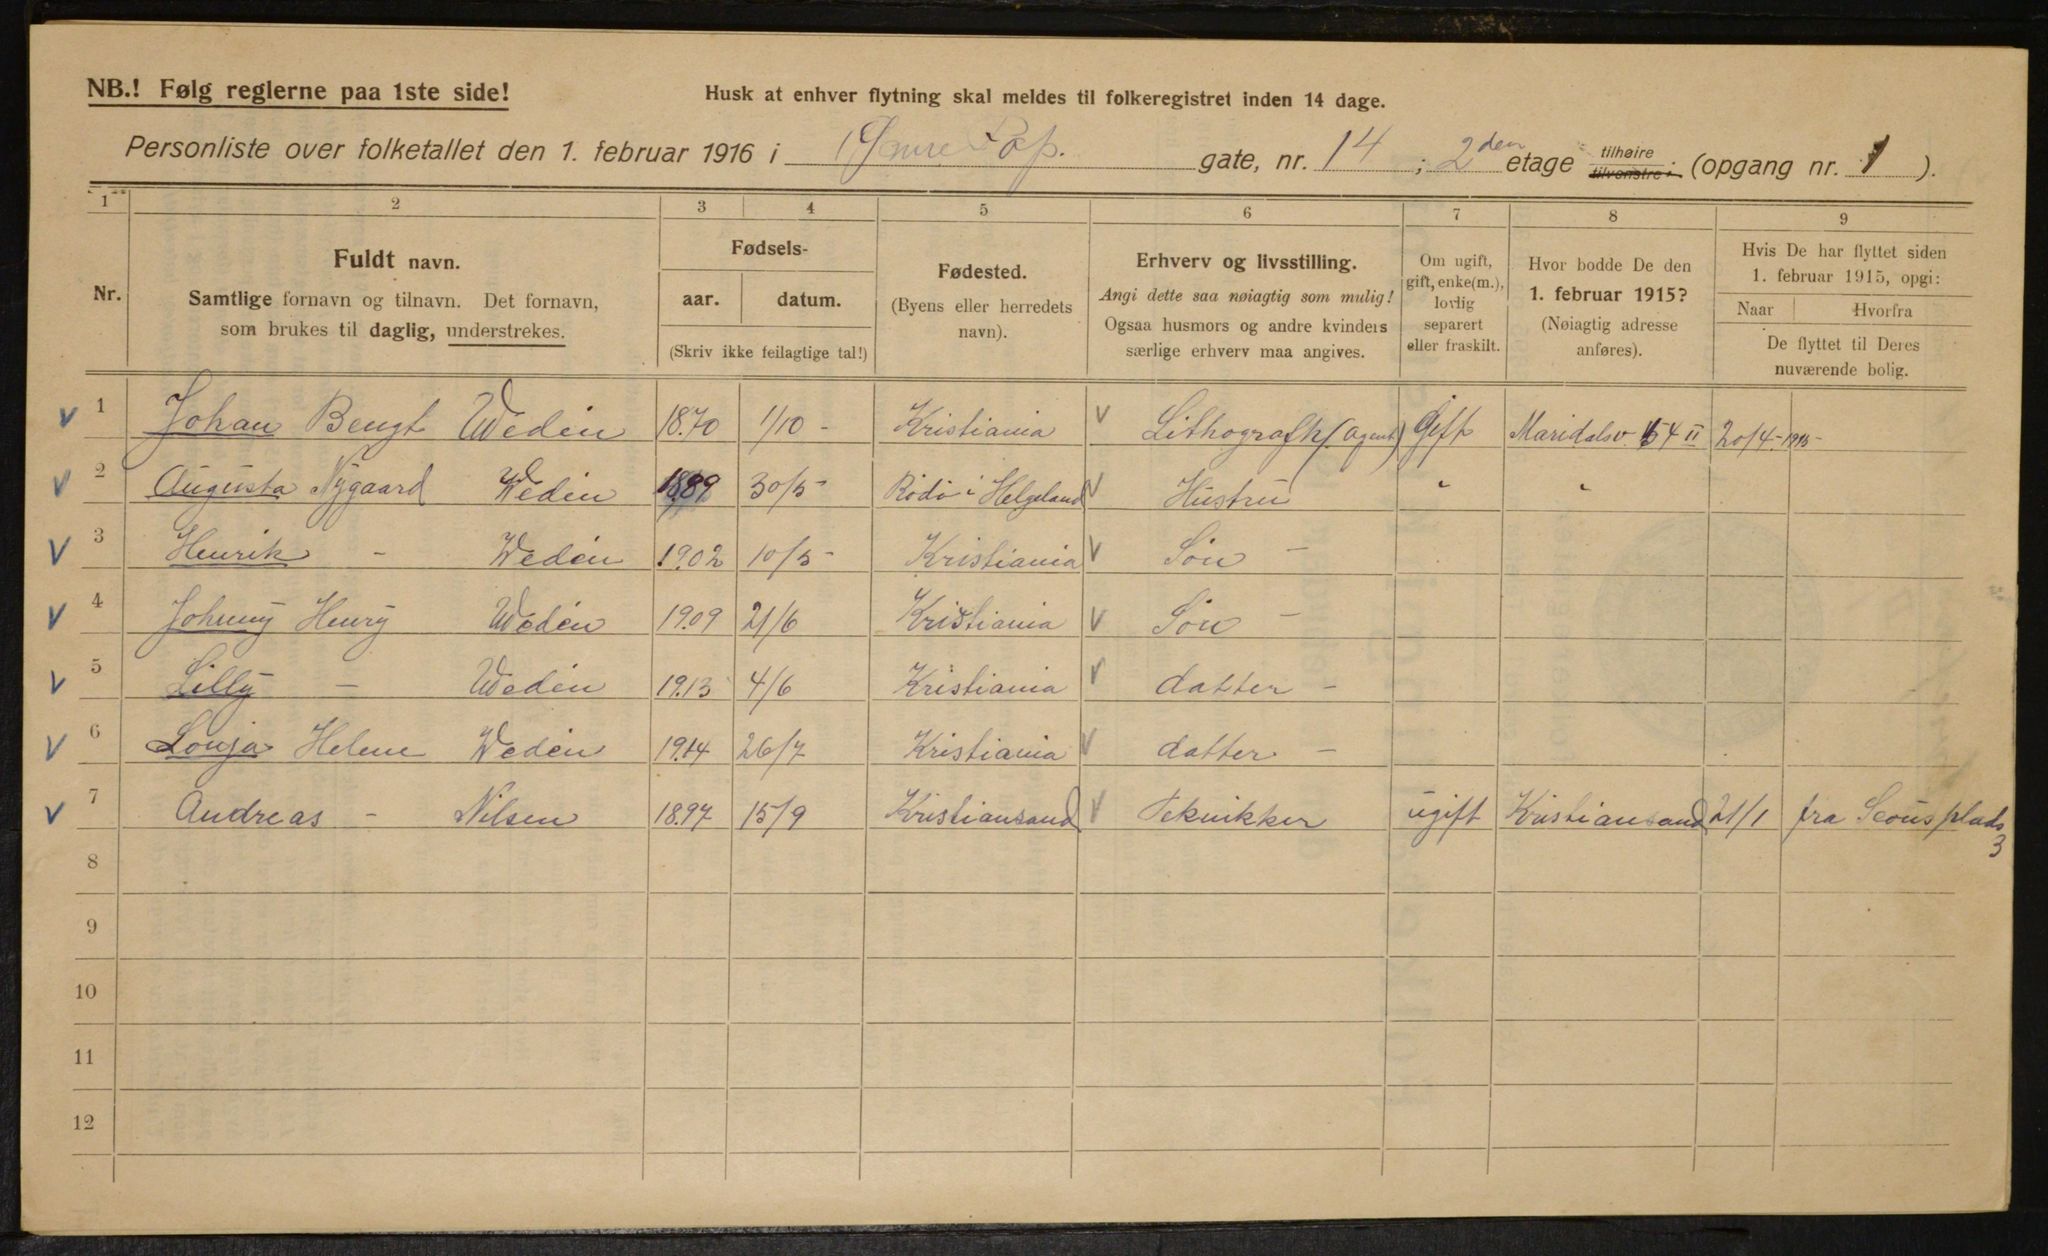 NB.! Følg reglerne paa 1ste side!
Husk at enhver flytning skal meldes til folkeregistret inden 14 dage.
Personliste over folketallet den 1. februar 1916 i gate, nr. 14 ; 2den etage tilhøire tilvenstre (opgang nr. 1 ).
1 2 3 4 5 6 7 8 9
Nr.
Fuldt navn.
Samtlige fornavn og tilnavn. Det fornavn,
som brukes til daglig, understrekes.
Fødsels-
aar. datum.
(Skriv ikke feilagtige tal!)
Fødested.
(Byens eller herredets
navn).
Erhverv og livsstilling.
Angi dette saa nøiagtig som mulig!
Ogsaa husmors og andre kvinders
særlige erhverv maa angives.
Om ugift,
gift, enke(m.),
lovlig
separert
eller fraskilt.
Hvor bodde De den
1. februar 1915?
(Nøiagtig adresse
anføres).
Hvis De har flyttet siden
1. februar 1915, opgi:
Naar Hvorfra
De flyttet til Deres
nuværende bolig.
1 Johan Bengt Wedén 1870 1/10 - Kristiania Lithografh (Agent) Gift Maridalsv. 20/4-1915-
2 Augusta Nygaard Wedén 1889 30/5 Rödö i Helgeland Hustru " "
3 Henrik - Wedén 1902 10/5 - Kristiania Sön -
4 Johnny Henry Wedén 1909 21/6 Kristiania Sön -
5 Lilly - Wedén 1913 4/6 Kristiania datter -
6 Sonja Helene Wedén 1914 26/7 Kristiania datter -
7 Andreas - Nilsen 1897 15/9 Kristiansand Teknikker ugift Kristiansand 21/1 fra plads
3
8
9
10
11
12